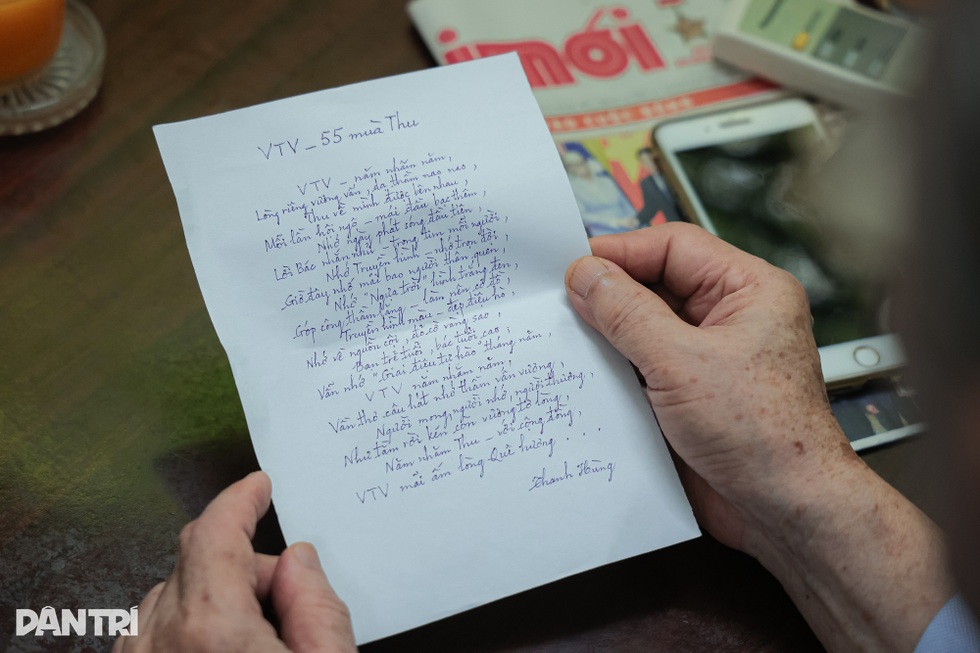 mới
VTV _ 55 mùa Thu
VTV - năm nhăm năm,
Lòng riêng vương vấn, dạ thầm nao nao,
Thu về mình được bên nhau,
Mỗi lần hội ngộ - mái đầu bạc thêm,
Nhớ ngày phát sóng đầu tiên,
Lời Bác nhắn nhủ - trong tim mỗi người
Nhớ Truyền hình - nhớ trọn đời
Giờ đây nhớ mãi bao người thân quen,
Nhớ "Ngựa trời" hình trắng đen,
Góp công thầm lặng - làm nên cơ đồ,
Truyền hình màu - đẹp diệu kỳ,
Nhớ về nguồn cội, đỏ cờ vàng sao,
Bạn trẻ tuổi, bác tuổi cao,
Vẫn nhớ "Giai điệu tự hào" tháng năm,
VTV năm nhăm năm,
Vần thơ câu hát nhớ thầm vấn vương,
Người mong, người nhớ, người thương,
Như tằm rồi kén còn vương tơ lòng,
Năm nhăm Thu - với cộng đồng,
VTV mãi ấm lòng Quê hương . . .
Thanh Hùng
DÂN TRÍ